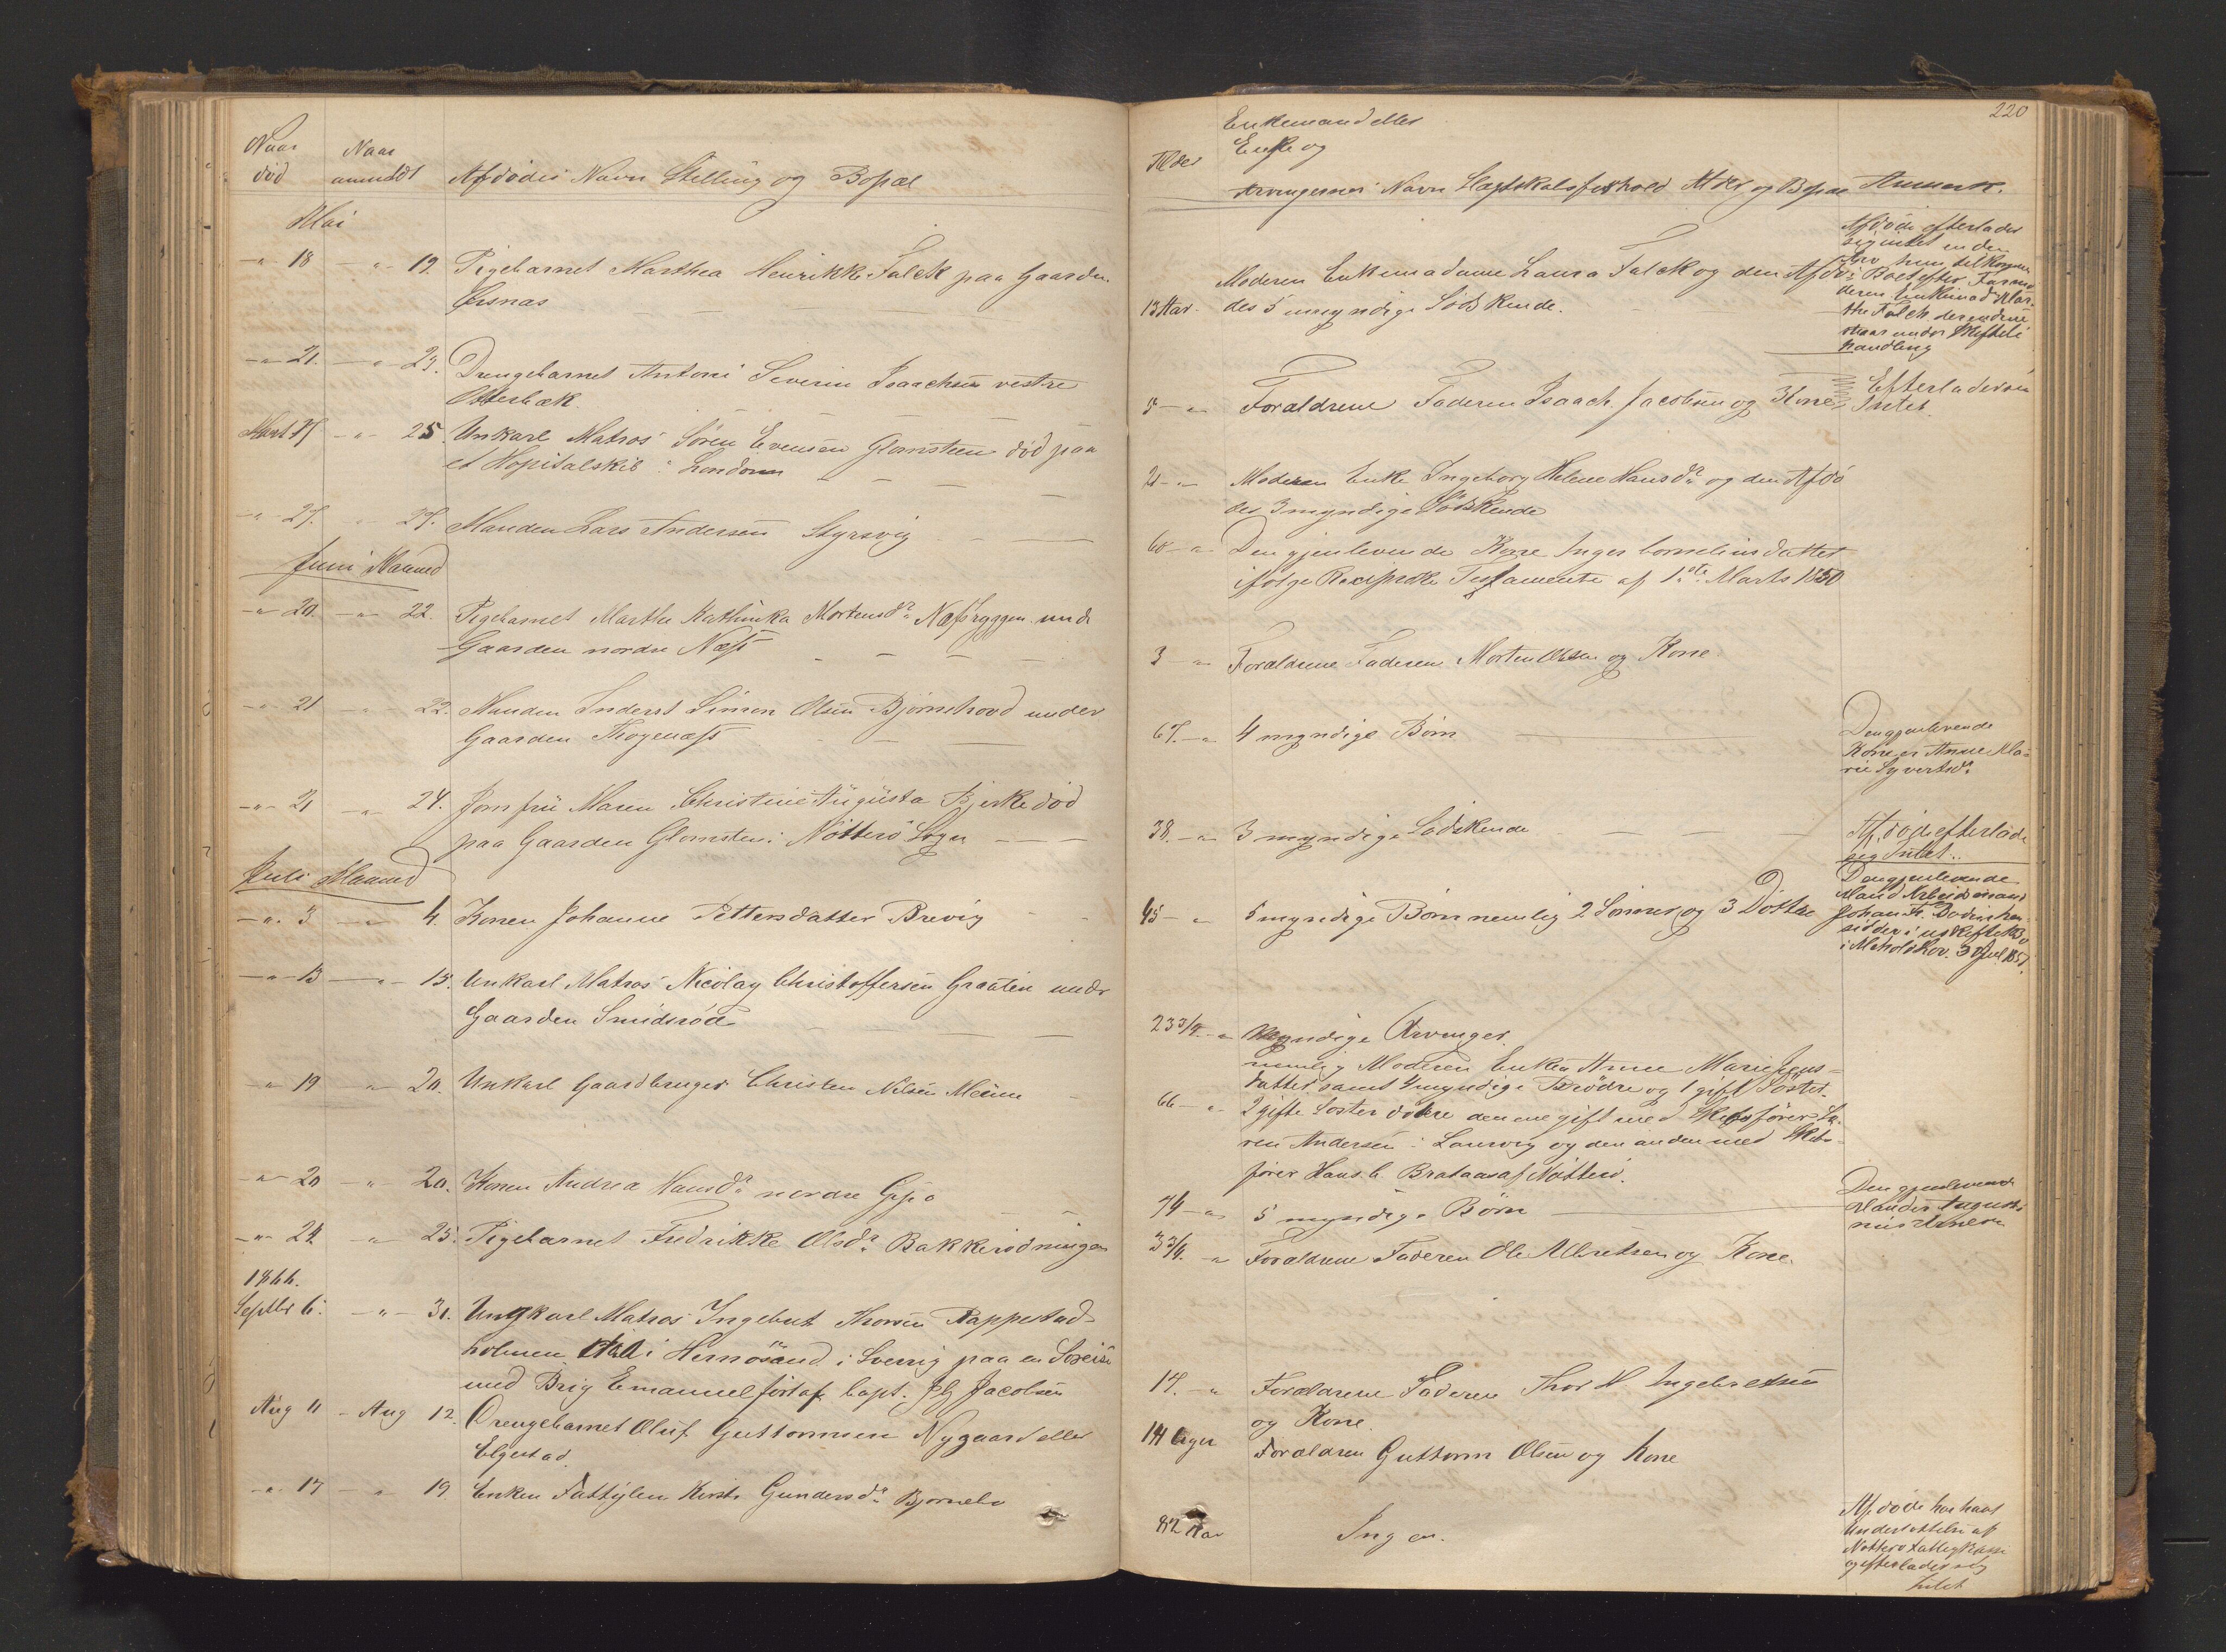 Naar
død
Naar
anmeldt
Afdødes Navn Stilling og Bopæl
Mai
-"- 18 -"- 19. Pigebarnet Marthea Henrikke Falck paa Gaarden
Ørsnæs
-"- 21. -"- 23. Drengebarnet Antoni Severin Isaachsen vestre
Otterbæk.
Marts 17 -"- 25. Unkarl Matros Søren Evensen Glomsteen død paa
et Hopitalskib i London
-"- 27. -"- 27. Manden Lars Andersen Styrsvig
Juni Maaned
-"- 20. -"- 22. Pigebarnet Marthe Kathinka Mortensdr. Næsbryggen und
Gaarden nordre Næss
-"- 21 -"- 22. Manden Inderst Simen Olsen Bjørnehovd under
Gaarden Skogenæss
-"- 21 -"- 24. Jomfru Maren Christine Augusta Bjerke død
paa Gaarden Glomsten i Nøtterø Sogn
Juli Maaned
-"- 3 -"- 4. Konen Johanne Pettersdatter Brevig
-"- 13 -"- 15. Unkarl Matros Nicolay Christoffersen Graaten undr
Gaarden Smidsrød
-"- 19 -"- 20. Unkarl Gaardbruger Christen Nilsen Meum
-"- 20 -"- 20. Konen Andrea Hansdr. nordre Gipø
-"- 24 -"- 25. Pigebarnet Fredrikke Olsdr. Bakkerødningen
1866.
Septbr 6. -"- 31. Ungkarl Matros Ingebret Thorsen Rappestad
holmen død i Hernøsand i Sverrig paa en Søreise
med Brig Emanuel ført af Capt. Jacobsen
Aug 11 - Aug 12. Drengebarnet Oluf Guttormsen Nygaard eller
Elgestad.
-"- 17 -"- 19 Enken Fattiglem Kirsti Gundersdr. Bjørnebo
220
Alder
Enkemand eller
Enke og
Arvingernes Navn Slægtskabsforhold Alder og Bopæl
Anmerk.
13 Aar. Moderen Enkemadame Laura Falck og den Afdø-
des 5 umyndige Sødskende.
Afdøde efterlader
sig intet uden
Arv hun tilkommer
i Boet efter Farmo
deren Enkemad Mar-
the Falck der endnu
staar under Skiftebe
handling
5 -"- Forældrene Faderen Isaach Jacobsen og Kone
Efterlader sig
Intet.
21 -"- Moderen Enke Ingeborg Helene Hansdr. og den Afdø
des 3 myndige Sødskende
60 -"- Den gjenlevende Kone Inger Corneliusdatter
ifølge Reciproke Testamente af 1ste Marts 1850
3 -"- Forældrene Faderen Morten Olsen og Kone
67. -"- 4 myndige Børn
Den gjenlevende
Kone er Anne Ma-
rie Syvertsdr.
38. -"- 3 myndige Sødskende
Afdøde efterlader
sig Intet..
45 -"- 5 myndige Børn nemlig 2 Sønner og 3 Døttre
Den gjenlevende
Mand Arbeidsmand
Johan
sidder i uskiftet Bo
i Mehold Lov. 30 Juli 1851.
23 3/4. -"- Myndige Arvinger
nemlig Moderen Enken Anne Marie Jens-
datter samt 4 myndige Brødre og 1 gift Søster.
66 -"- 2 gifte Søster døttre den ene gift med Skibsfører Sø-
ren Andersen i Laurvig og den anden med Skibs-
fører Hans C. Brataas af Nøtterø.
74 -"- 5 myndige Børn
Den gjenlevende
Mand er Augusti
nus Arnesen
3 3/4. -"- Forældrene Faderen Ole Albretsen og Kone.
17. -"- Forældrene Faderen Thor H. Ingebretsen
og Kone.
14 Uger Forældren Guttorm Olsen og Kone
82 Aar Ingen.
Afdøde har havt
Understøttelse af
Nøtterø Fattigkasse
og efterlader sig
Intet